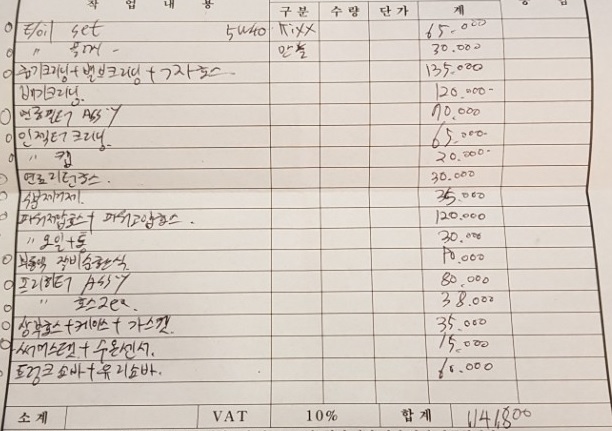 작 업 내 용 구 분 수 량 단 가 계
E/oil set 5W40 Kixx 65.000
" 30.000
흡기크리닝+밸브크리닝+ㄱ자호스 135.000
배기크리닝 120.000
연료필터 ASS'Y 70.000
인젝터 크리닝 65.000
" 캡 20.000
연료리턴호스 30.000
수분제거제 35.000
파워저압호스+파워고압호스 120.000
" 오일+통 30.000
장비순환식 80.000
프리히터 ASS'Y 80.000
" 호스2ea 38.000
상부호스+케이스+가스켓 35.000
써머스탯+수온센서 15.000
트렁크쇼바+유리쇼바 60.000
소 계 VAT 10% 합 계